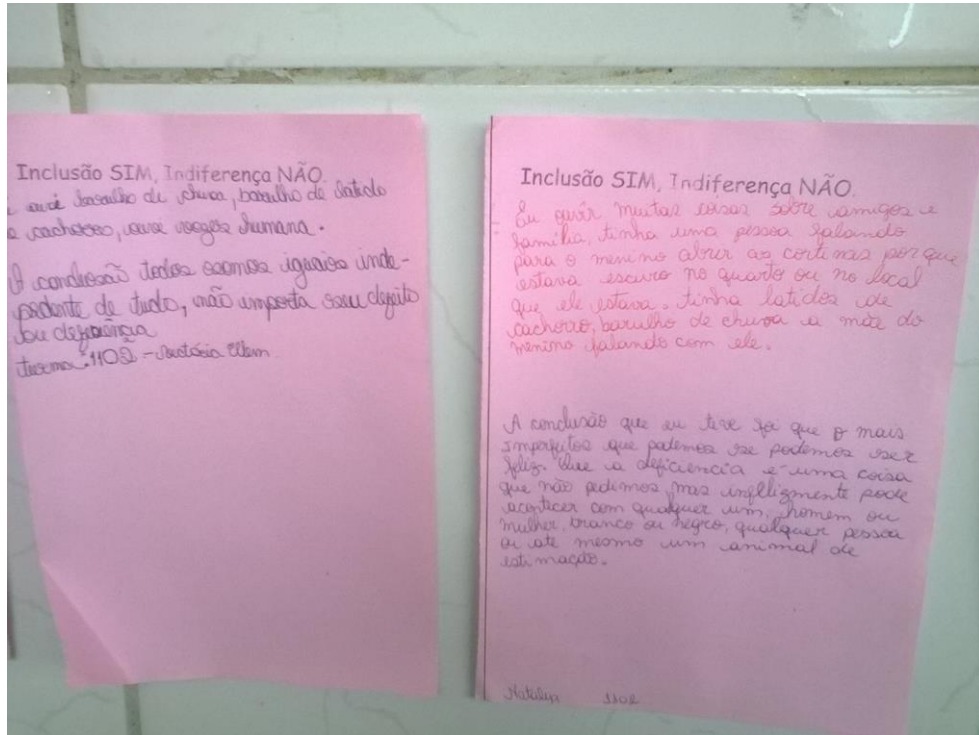 Inclusão SIM, Indiferença NÃO.
ouvi barulho de chuva, barulho de latido
cachorro, ouvi vozes humana.
A conclusão todos somos iguaios inde-
pedente de tudo, não importa seu defeito
ou deficiência
turma: 1102 - Victória
Inclusão SIM, Indiferença NÃO.
Eu ouvir muitas coisas sobre amigos e
família, tinha uma pessoa falando
para o menino abrir as cortinas por que
estava escuro no quarto ou no local
que ele estava. tinha latidos de
cachorro, barulho de chuva a mãe do
menino falando com ele.
A conclusão que eu tive foi que o mais
imperfeitos que podemos se podemos ser
feliz. Que a deficiencia é uma coisa
que não pedimos, mas infelizmente pode
acontecer com qualquer um, homem ou
mulher, branco ou negro, qualquer pessoa
ou até mesmo um animal de
estimação.
1102